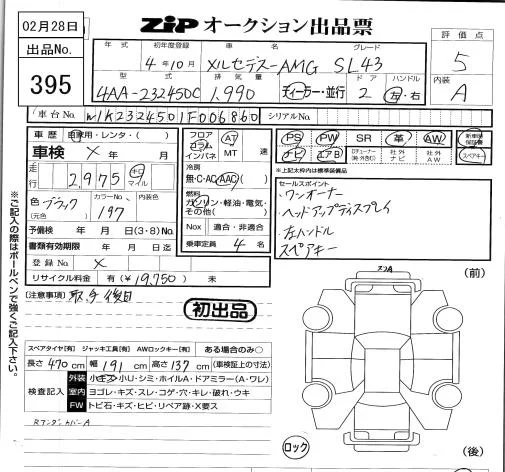 02月28日
ZIP オークション出品票
出品No.
395
年式 初年度登録 車名 グレード
4年10月 メルセデス-AMG SL43
評価点
5
型式 排気量 ドア ハンドル
4AA-232450C 1,990 ディーラー・並行 2 左・右
内装
A
車台No. W1K2324501F006860 シリアルNo.
車歴 自家用・レンタ・( )
車検 × 年 月
走行 2,975 キロ マイル
色 ブラック カラーNo. 197 内装色
(元色)
予備検 年 月 日(3・8)No.
書類有効期限 年 月 日迄
登録No. ×
リサイクル料金 有(¥19,750) 未
フロア コラム インパネ AT MT 速
冷房
無・C・AC・AAC
燃料
ガソリン・軽油・電気・その他( )
Nox 適合・非適合
乗車定員 4 名
PS PW SR 革 AW 新車時保証書
ナビ エアB 社外ナビ 社外AW スペアキー
※上記太枠内は標準装備品
セールスポイント
・ワンオーナー
・ヘッドアップディスプレイ
・左ハンドル
・スペアキー
※ご記入の際はボールペンで強くご記入下さい。
[注意事項]
初出品
スペアタイヤ[有] ジャッキ工具[有] AWロックキー[有] ある場合のみ○
長さ 470cm 幅 191cm 高さ 137cm (車検証上の寸法)
検査記入
外装 小キズ・小U・シミ・ホイルA・ドアミラー(A・ワレ)
室内 ヨゴレ・キズ・スレ・コゲ・穴・キレ・破れ・ウキ
FW トビ石・キズ・ヒビ・リペア跡・X要ス
RアンダーカバーA
(前)
ロック
(後)